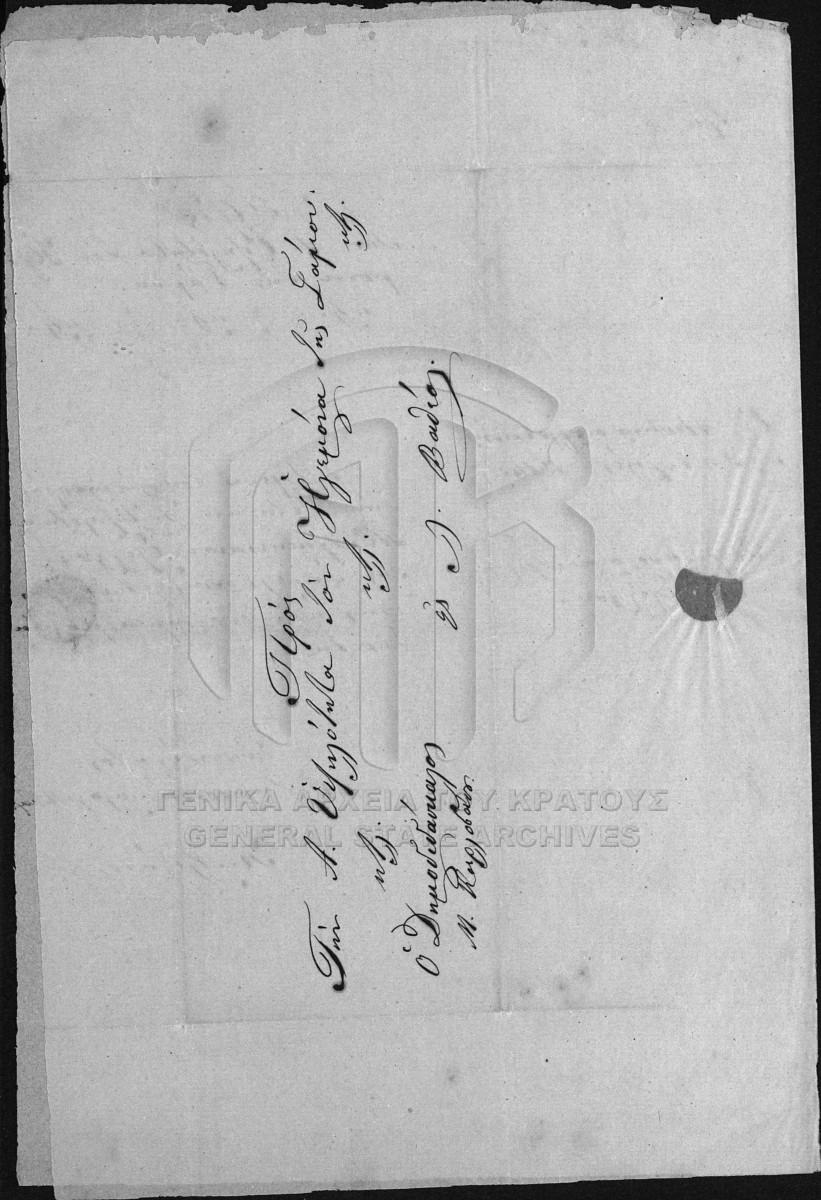 Πρὸς
Τὴν Α. Ὑψηλότητα τὸν Ἡγεμόνα τῆς Σάμου.
κτλ. κτλ. κτλ.
Ὁ Δημοδιδάσκαλος
Μ.
εἰς Λ. Βαθέος.
ΓΕΝΙΚΑ ΑΡΧΕΙΑ ΤΟΥ ΚΡΑΤΟΥΣ
GENERAL STATE ARCHIVES